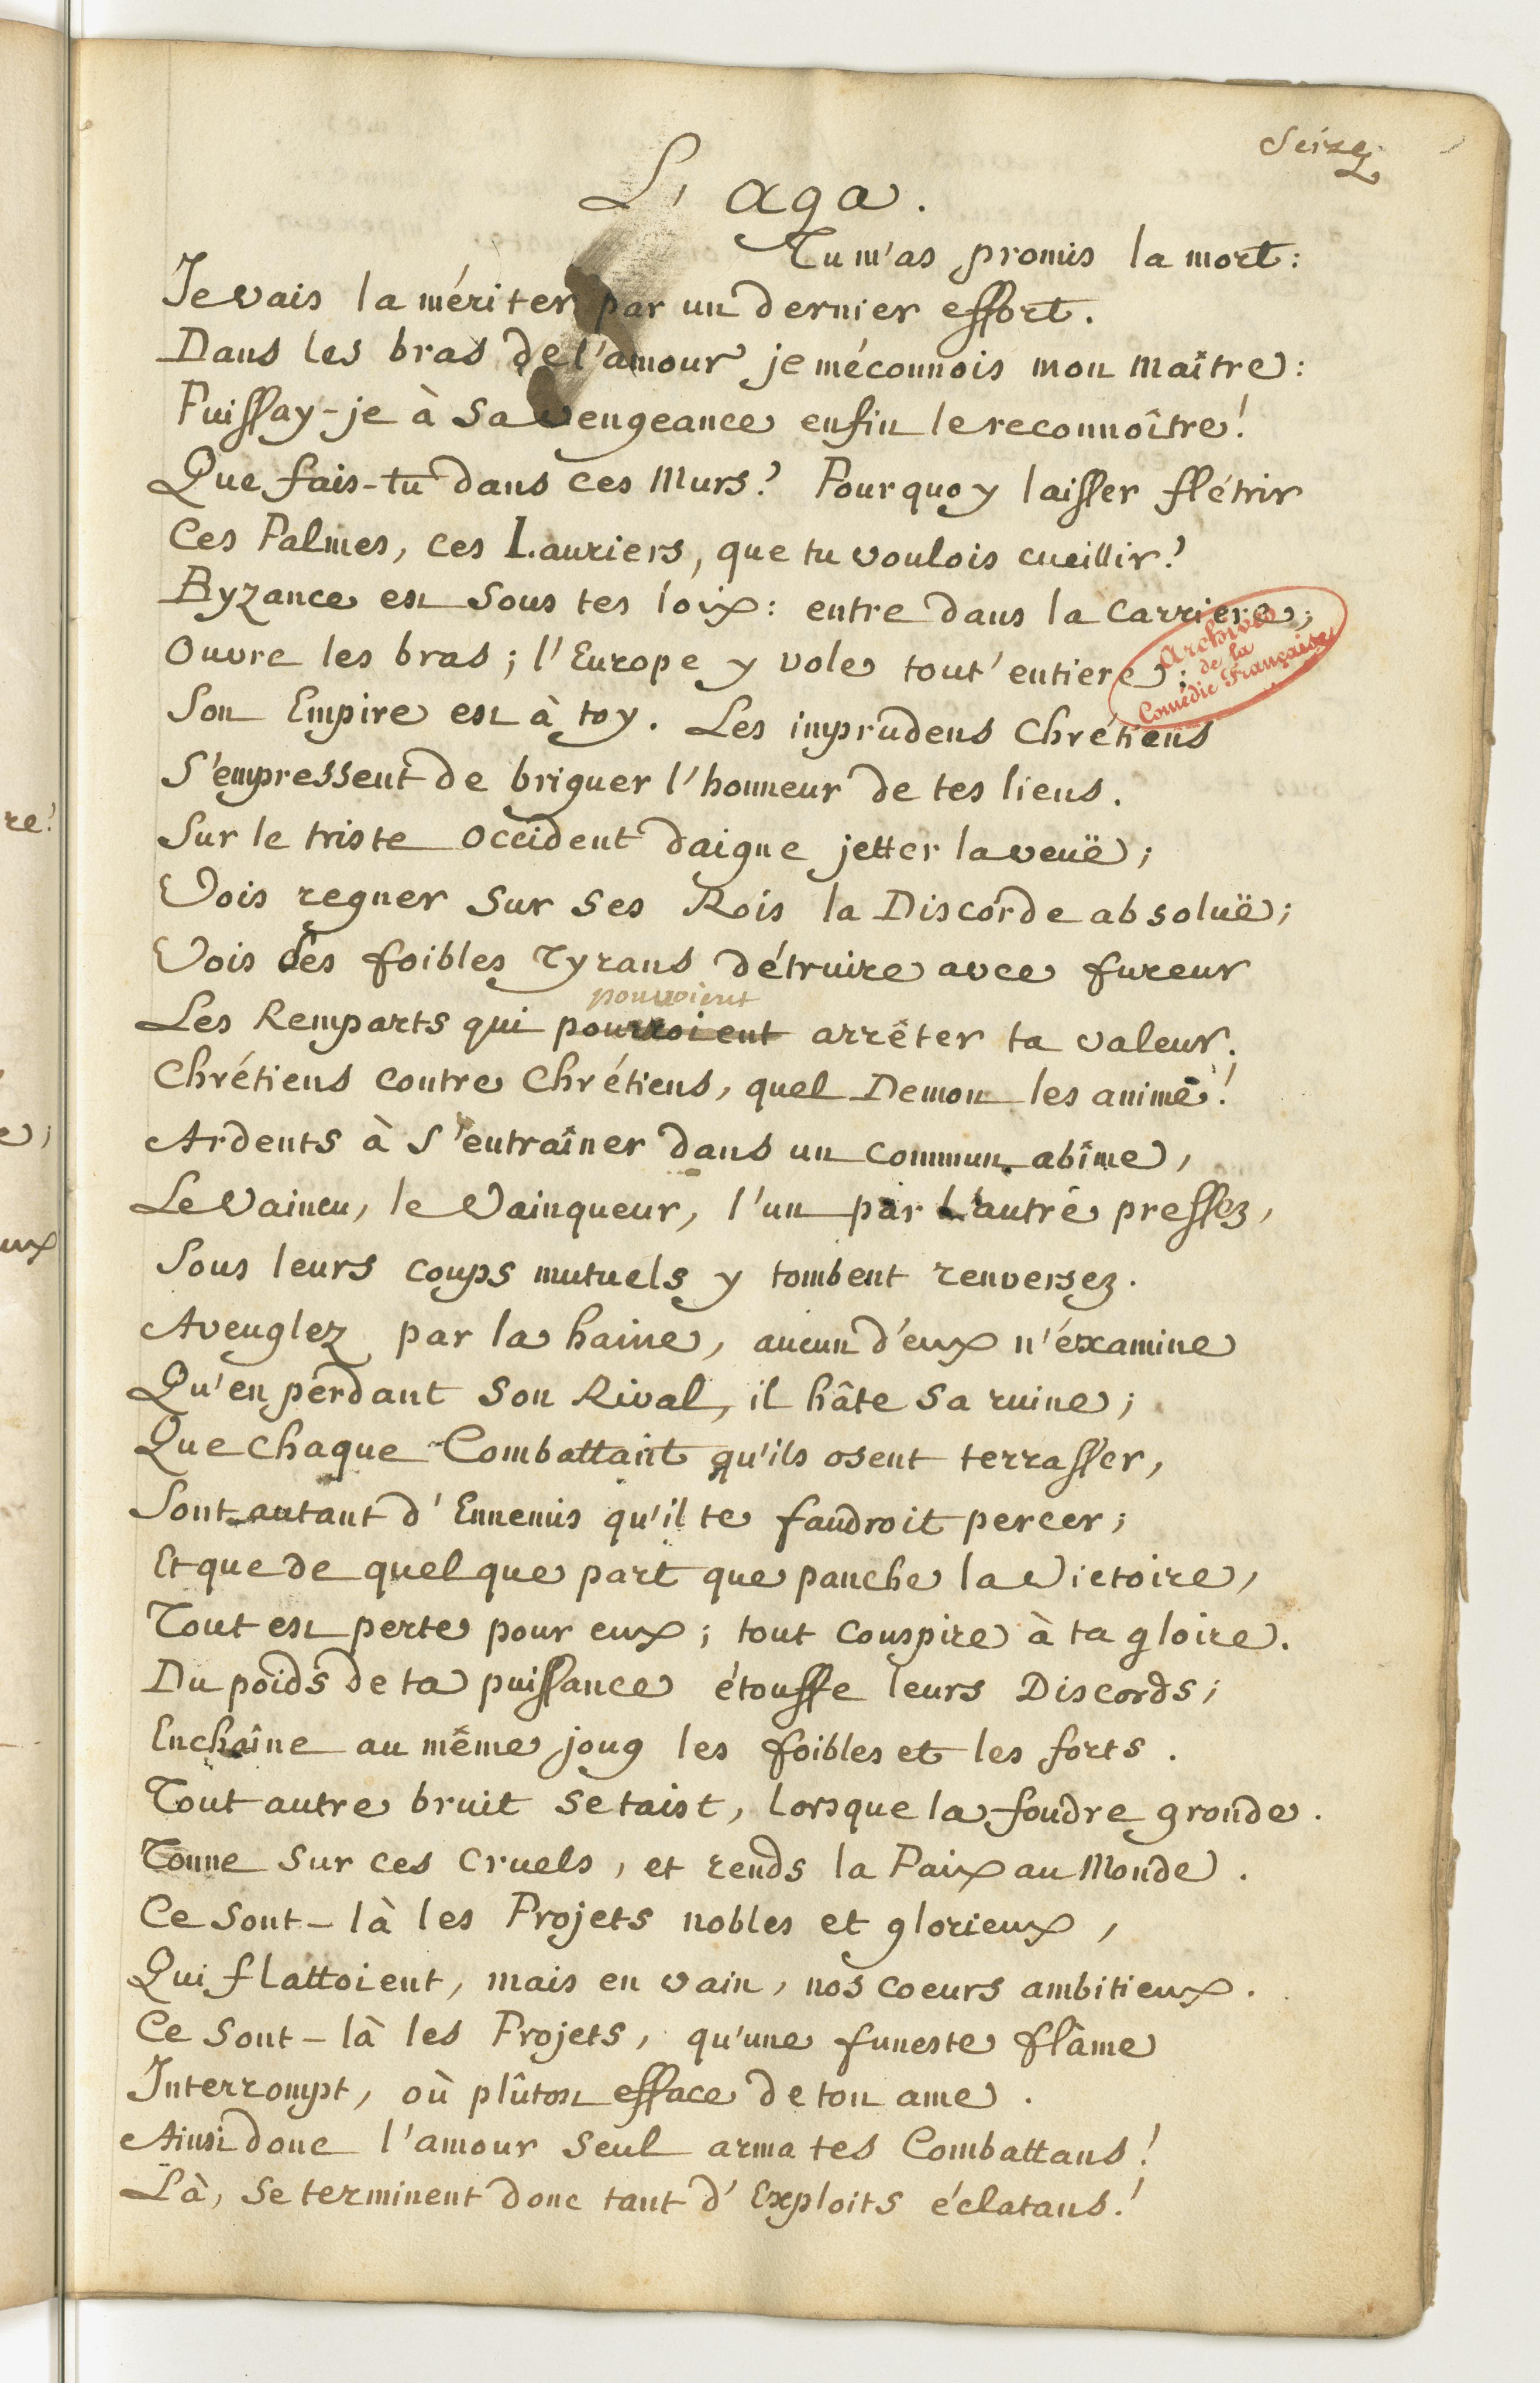 Seize
L'aga.
Tu m'as promis la mort:
Je vais la mériter par un dernier effort.
Dans les bras de l'amour je méconnois mon maître:
Puissay-je à sa vengeance enfin le reconnoître!
Que fais-tu dans ces Murs? Pourquoy laisser flétrir
Ces Palmes, ces Lauriers, que tu voulois cueillir?
Byzance est sous tes loix: entre dans la carriere;
Archives
de la
Comédie Française
Ouvre les bras; l'Europe y vole tout'entiere;
Son Empire est à toy. Les imprudens Chrétiens
S'empressent de briguer l'honneur de tes liens.
Sur le triste Occident daigne jetter la veuë;
Vois regner sur ses Rois la Discorde absoluë;
Vois ces foibles Tyrans détruire avec fureur
pouvoient
Les Remparts qui pourroient arrêter ta valeur.
Chrétiens contre Chrétiens, quel Demon les anime!
Ardents à s'entraîner dans un commun abîme,
Le Vaincu, le Vainqueur, l'un par L'autre pressez,
Sous leurs coups mutuels y tombent renversez.
Aveuglez par la haine, aucun d'eux n'éxamine
Qu'en perdant son Rival, il hâte sa ruine;
Que chaque Combattant qu'ils osent terrasser,
Sont autant d'Ennemis qu'il te faudroit percer;
Et que de quelque part que panche la Victoire,
Tout est perte pour eux; tout conspire à ta gloire.
Du poids de ta puissance étouffe leurs Discords;
Enchaîne au même joug les foibles et les forts.
Tout autre bruit se taist, lorsque la foudre gronde.
Tonne sur ces cruels, et rends la Paix au Monde.
Ce sont-là les Projets nobles et glorieux,
Qui flattoient, mais en vain, nos coeurs ambitieux.
Ce sont-là les Projets, qu'une funeste flâme
Interrompt, où plûtost efface de ton ame.
Ainsi donc l'amour seul arma tes Combattans!
Là, se terminent donc tant d'Exploits éclatans!
re!
e;
eux